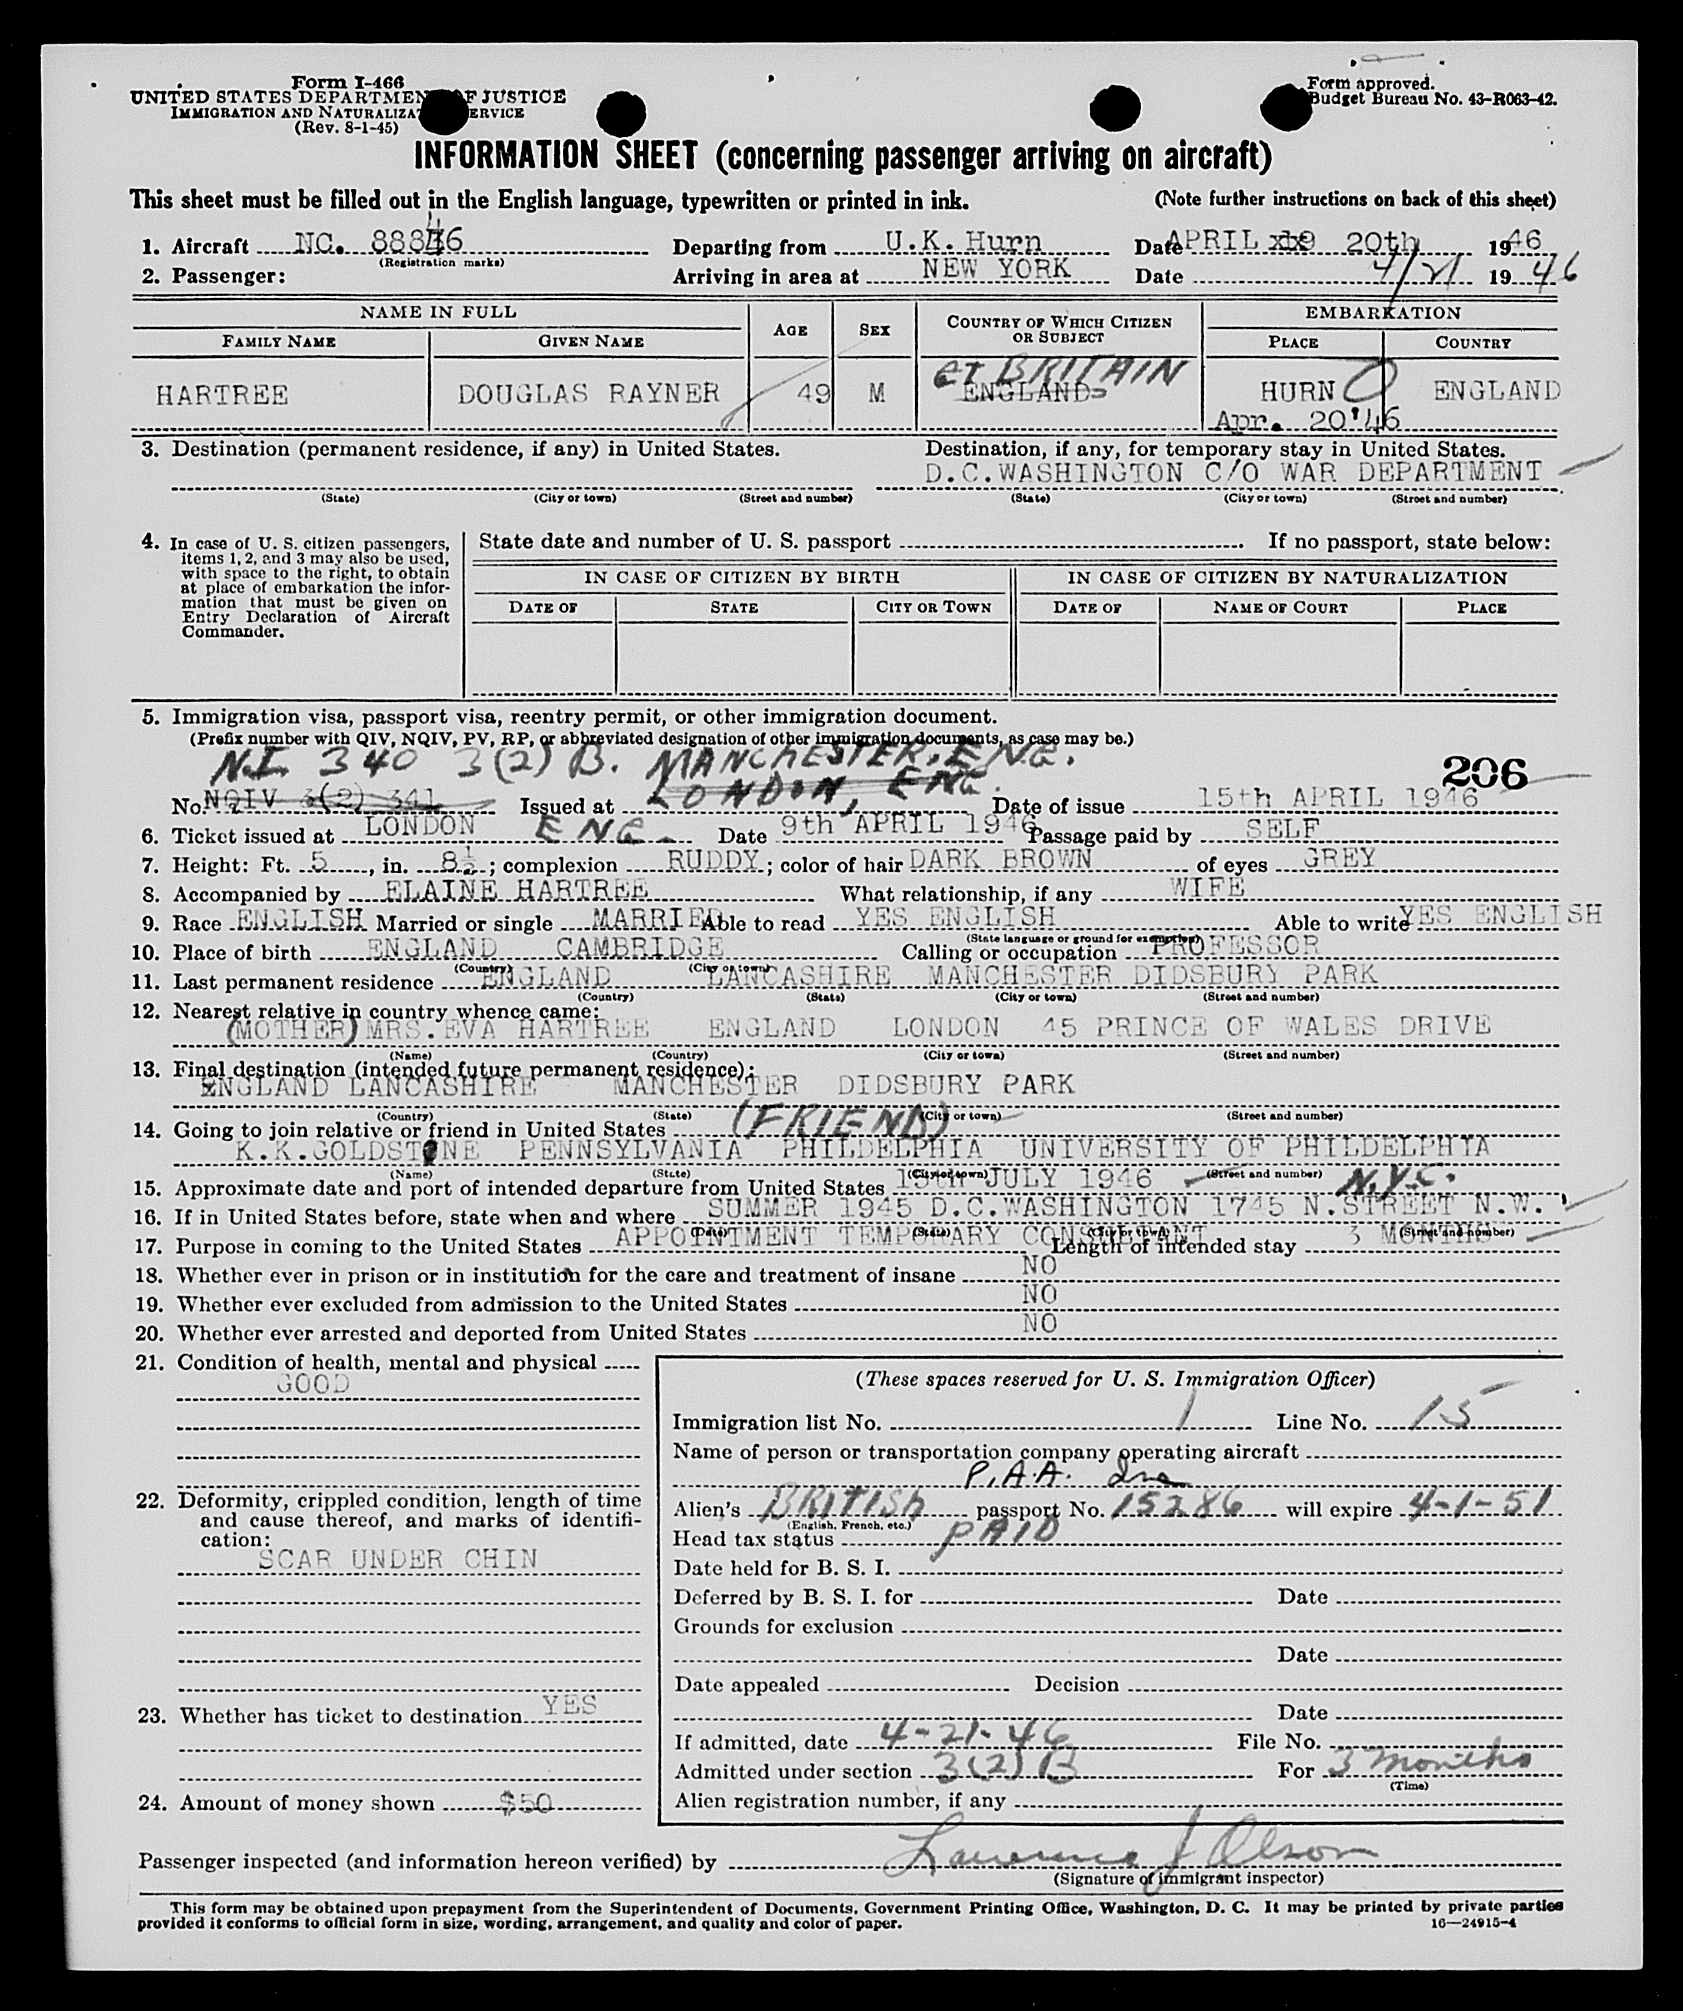 Form I-466
UNITED STATES DEPARTMENT OF JUSTICE
IMMIGRATION AND NATURALIZATION SERVICE
(Rev. 8-1-45)
Form approved.
Budget Bureau No. 43-R063-42.
INFORMATION SHEET (concerning passenger arriving on aircraft)
This sheet must be filled out in the English language, typewritten or printed in ink. (Note further instructions on back of this sheet)
1. Aircraft NC. 88846 Departing from U.K. Hurn Date APRIL 20th 1946
(Registration marks)
2. Passenger: Arriving in area at NEW YORK Date 4/21 1946
NAME IN FULL AGE SEX COUNTRY OF WHICH CITIZEN OR SUBJECT EMBARKATION
FAMILY NAME GIVEN NAME PLACE COUNTRY
GT BRITAIN
HARTREE DOUGLAS RAYNER 49 M ENGLAND HURN ENGLAND
Apr. 20'46
3. Destination (permanent residence, if any) in United States. Destination, if any, for temporary stay in United States.
D.C.WASHINGTON C/O WAR DEPARTMENT
(State) (City or town) (Street and number) (State) (City or town) (Street and number)
4. In case of U. S. citizen passengers, items 1, 2, and 3 may also be used, with space to the right, to obtain at place of embarkation the information that must be given on Entry Declaration of Aircraft Commander.
State date and number of U. S. passport If no passport, state below:
IN CASE OF CITIZEN BY BIRTH IN CASE OF CITIZEN BY NATURALIZATION
DATE OF STATE CITY OR TOWN DATE OF NAME OF COURT PLACE
5. Immigration visa, passport visa, reentry permit, or other immigration document.
(Prefix number with QIV, NQIV, PV, RP, or abbreviated designation of other immigration documents, as case may be.)
N.I. 340 3(2) B. MANCHESTER, ENG. 206
No. NQIV 3(2) 341 Issued at LONDON, ENG. Date of issue 15th APRIL 1946
6. Ticket issued at LONDON ENG. Date 9th APRIL 1946 Passage paid by SELF
7. Height: Ft. 5, in. 8½; complexion RUDDY; color of hair DARK BROWN of eyes GREY
8. Accompanied by ELAINE HARTREE What relationship, if any WIFE
9. Race ENGLISH Married or single MARRIED Able to read YES ENGLISH Able to write YES ENGLISH
(State language or ground for exemption)
10. Place of birth ENGLAND CAMBRIDGE Calling or occupation PROFESSOR
(Country) (City or town)
11. Last permanent residence ENGLAND LANCASHIRE MANCHESTER DIDSBURY PARK
(Country) (State) (City or town) (Street and number)
12. Nearest relative in country whence came:
(MOTHER) MRS. EVA HARTREE ENGLAND LONDON 45 PRINCE OF WALES DRIVE
(Name) (Country) (City or town) (Street and number)
13. Final destination (intended future permanent residence):
ENGLAND LANCASHIRE MANCHESTER DIDSBURY PARK
(Country) (State) (City or town) (Street and number)
14. Going to join relative or friend in United States (FRIEND)
K.K.GOLDSTINE PENNSYLVANIA PHILDELPHIA UNIVERSITY OF PHILDELPHIA
(Name) (State) (City or town) (Street and number)
15. Approximate date and port of intended departure from United States JULY 1946 N.Y.C.
16. If in United States before, state when and where SUMMER 1945 D.C.WASHINGTON 1745 N.STREET N.W.
(Date) (State) (City or town) (Street and number)
17. Purpose in coming to the United States APPOINTMENT TEMPORARY CONSULTANT Length of intended stay 3 MONTHS
18. Whether ever in prison or in institution for the care and treatment of insane NO
19. Whether ever excluded from admission to the United States NO
20. Whether ever arrested and deported from United States NO
21. Condition of health, mental and physical
GOOD
22. Deformity, crippled condition, length of time
and cause thereof, and marks of identifi-
cation:
SCAR UNDER CHIN
23. Whether has ticket to destination YES
24. Amount of money shown $50
(These spaces reserved for U. S. Immigration Officer)
Immigration list No. 1 Line No. 15
Name of person or transportation company operating aircraft
P.A.A. Inc
Alien's BRITISH passport No. 15286 will expire 4-1-51
(English, French, etc.)
Head tax status PAID
Date held for B. S. I.
Deferred by B. S. I. for Date
Grounds for exclusion
Date
Date appealed Decision
Date
If admitted, date 4-21-46 File No.
Admitted under section 3(2) B For 3 months
(Time)
Alien registration number, if any
Passenger inspected (and information hereon verified) by Lawrence J Olson
(Signature of immigrant inspector)
This form may be obtained upon prepayment from the Superintendent of Documents, Government Printing Office, Washington, D. C. It may be printed by private parties
provided it conforms to official form in size, wording, arrangement, and quality and color of paper. 16—24915-4